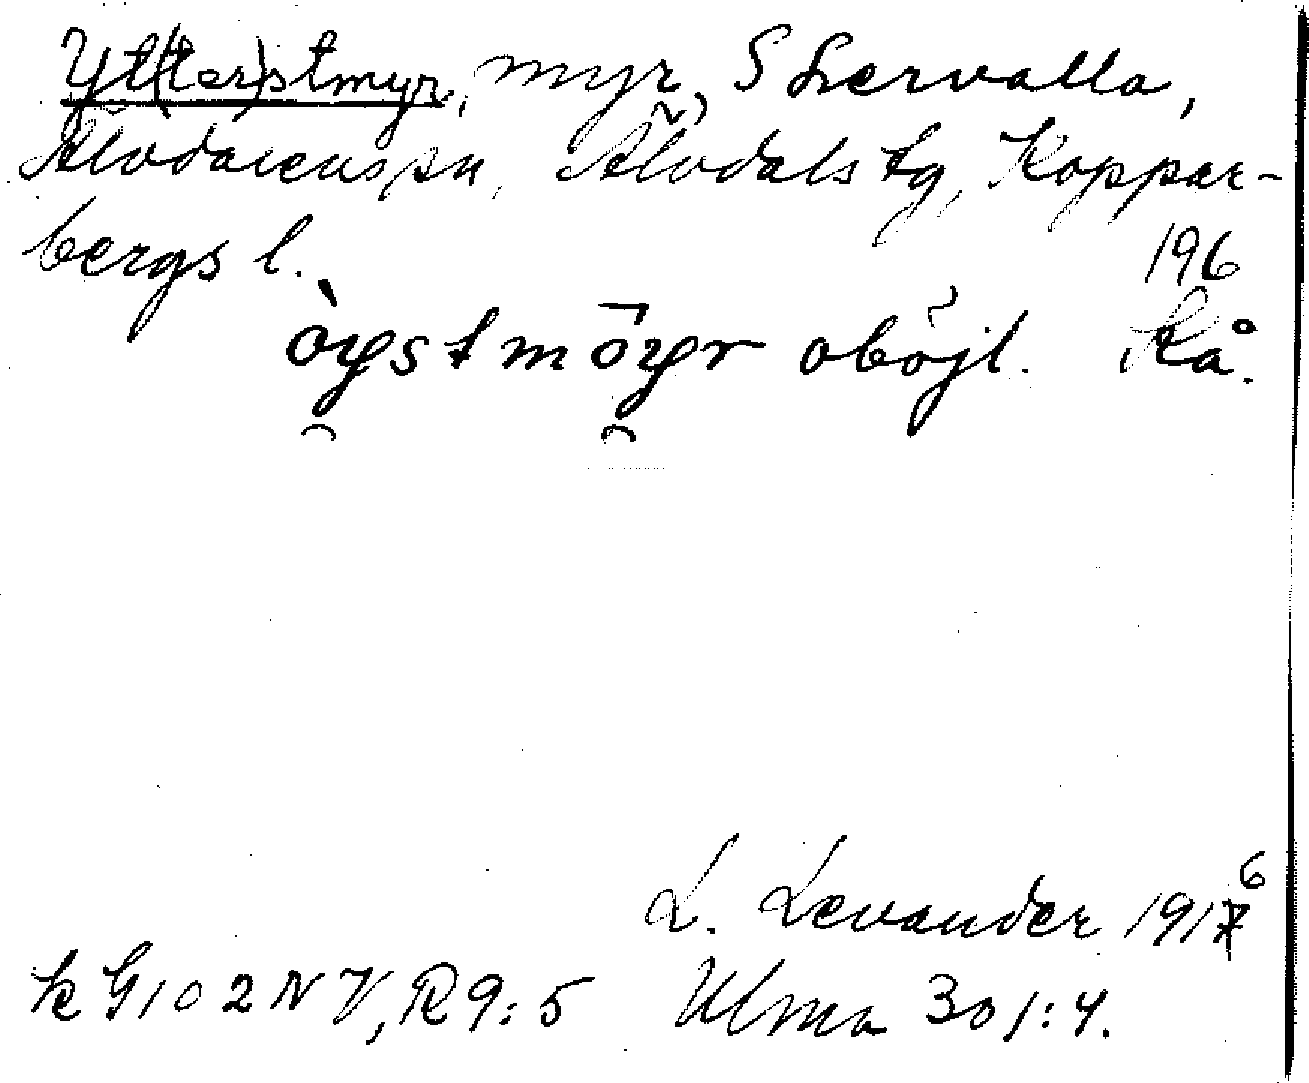 Yt(ter)stmyr, myr, S Lervalla,
Älvdalens sn, Älvdals tg, Koppar-
bergs l.
196
òystmōyr oböjl. Kå.
L. Levander 1916
k G 102 NV, R 9:5 Ulma 301:4.